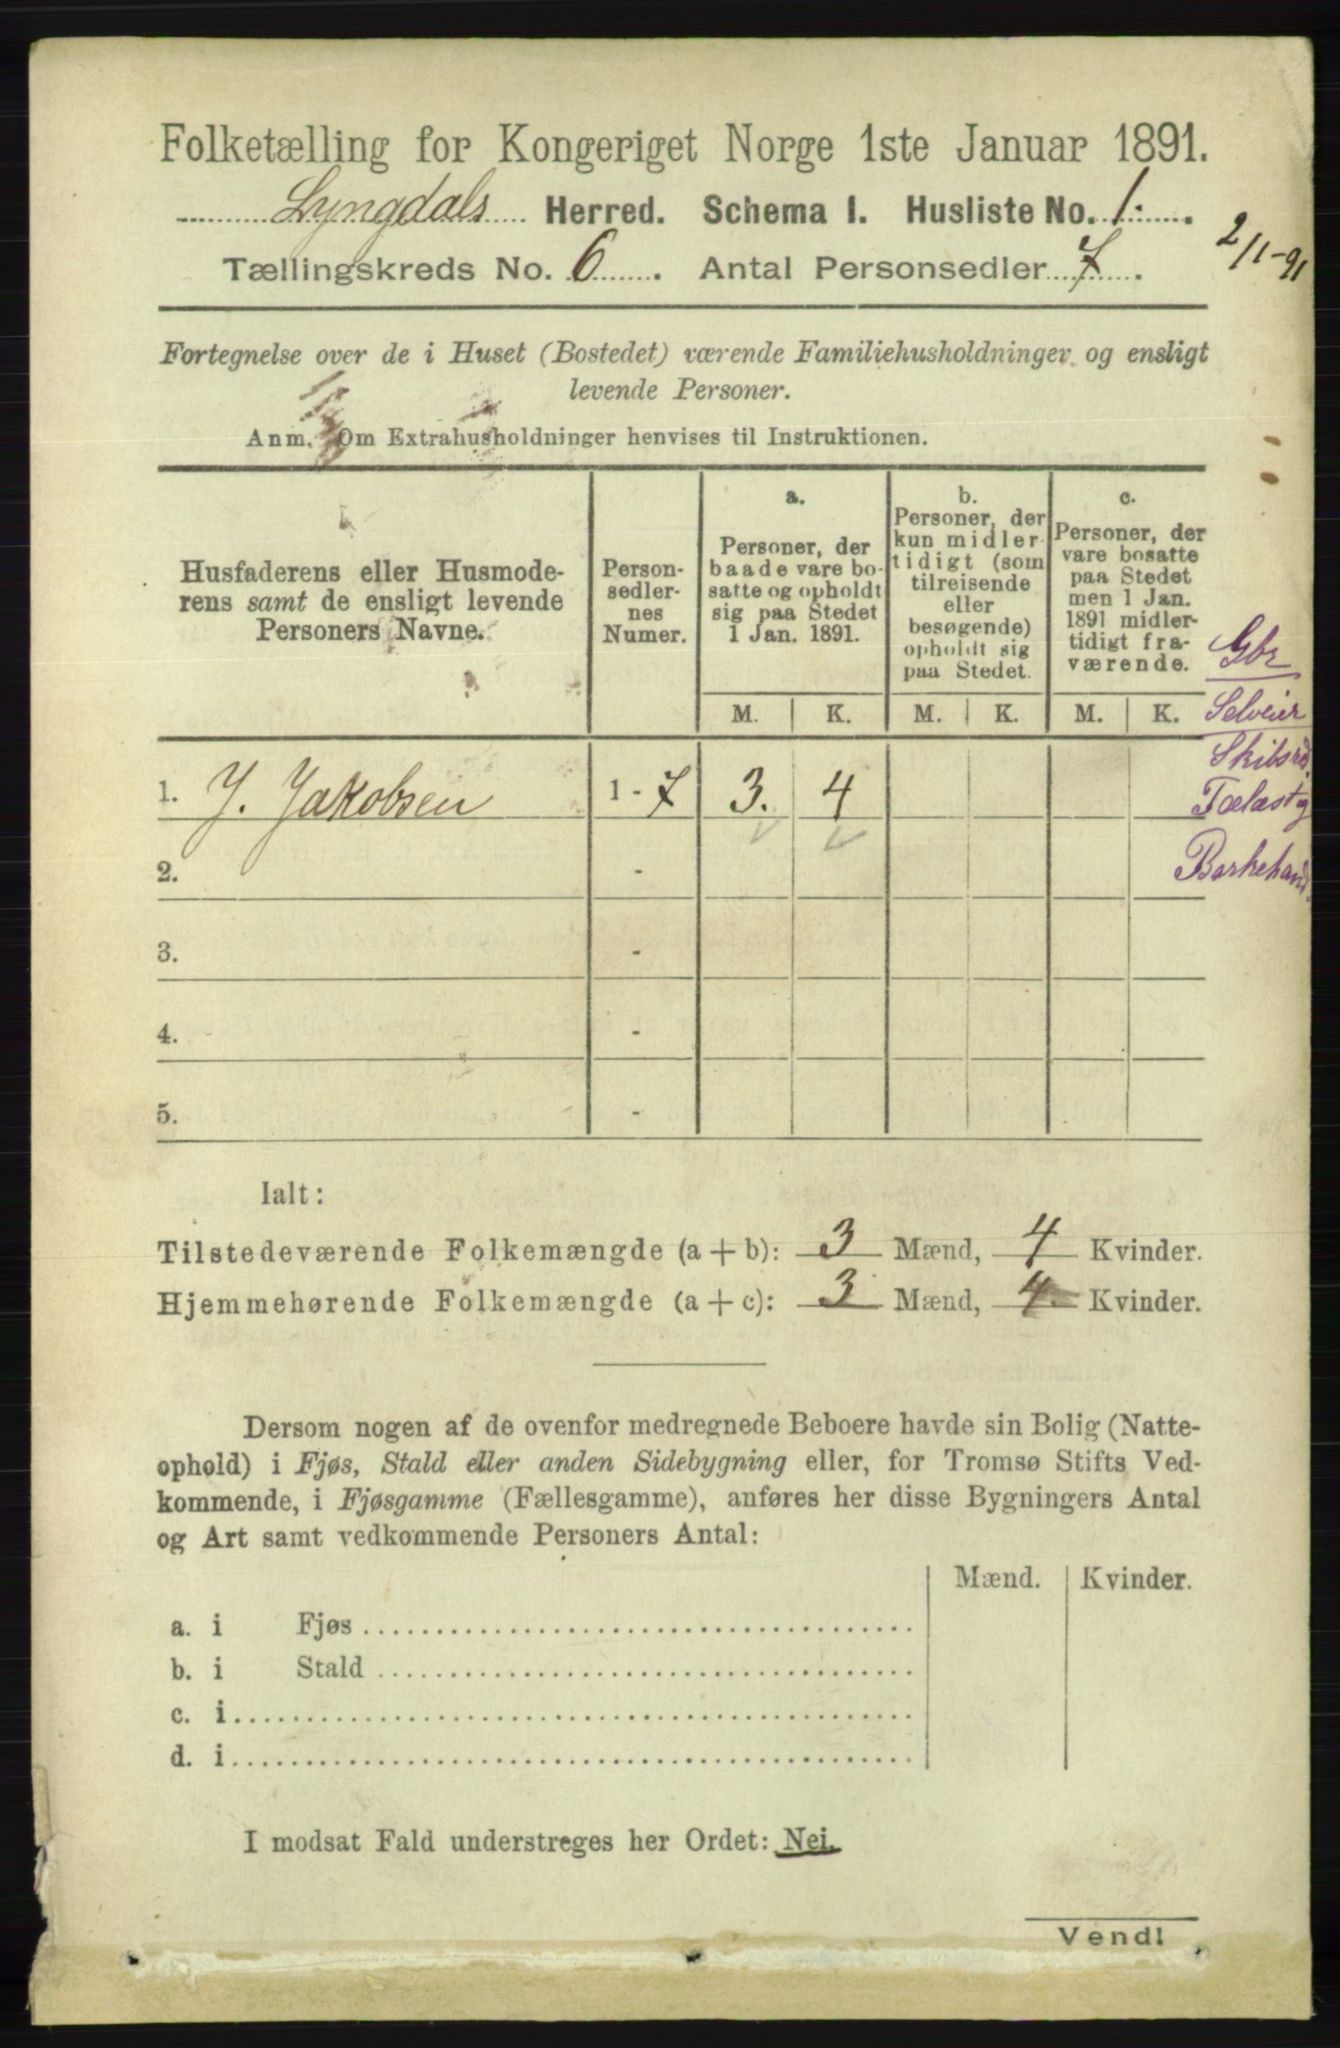 Folketælling for Kongeriget Norge 1ste Januar 1891.
Lyngdals Herred. Schema I. Husliste No. 1.
Tællingskreds No. 6. Antal Personsedler 7.
2/1-91
Fortegnelse over de i Huset (Bostedet) værende Familiehusholdninger og ensligt
levende Personer.
Anm. Om Extrahusholdninger henvises til Instruktionen.
Husfaderens eller Husmode-
rens samt de ensligt levende
Personers Navne.
Person-
sedler-
nes
Numer.
a.
Personer, der
baade vare bo-
satte og opholdt
sig paa Stedet
1 Jan. 1891.
b.
Personer, der
kun midler-
tidigt (som
tilreisende
eller
besøgende)
opholdt sig
paa Stedet.
c.
Personer, der
vare bosatte
paa Stedet
men 1 Jan.
1891 midler-
tidigt fra-
værende.
M. K. M. K. M. K.
Gbr
Selveier
Skibsred.
1. J. Jakobsen 1 - 7 3. 4
2. -
3. -
4. -
5. -
Ialt:
Tilstedeværende Folkemængde (a + b): 3 Mænd, 4 Kvinder.
Hjemmehørende Folkemængde (a + c): 3 Mænd, 4 Kvinder.
Dersom nogen af de ovenfor medregnede Beboere havde sin Bolig (Natte-
ophold) i Fjøs, Stald eller anden Sidebygning eller, for Tromsø Stifts Ved-
kommende, i Fjøsgamme (Fællesgamme), anføres her disse Bygningers Antal
og Art samt vedkommende Personers Antal:
Mænd. Kvinder.
a. i Fjøs
b. i Stald
c. i
d. i
I modsat Fald understreges her Ordet: Nei.
Vend!